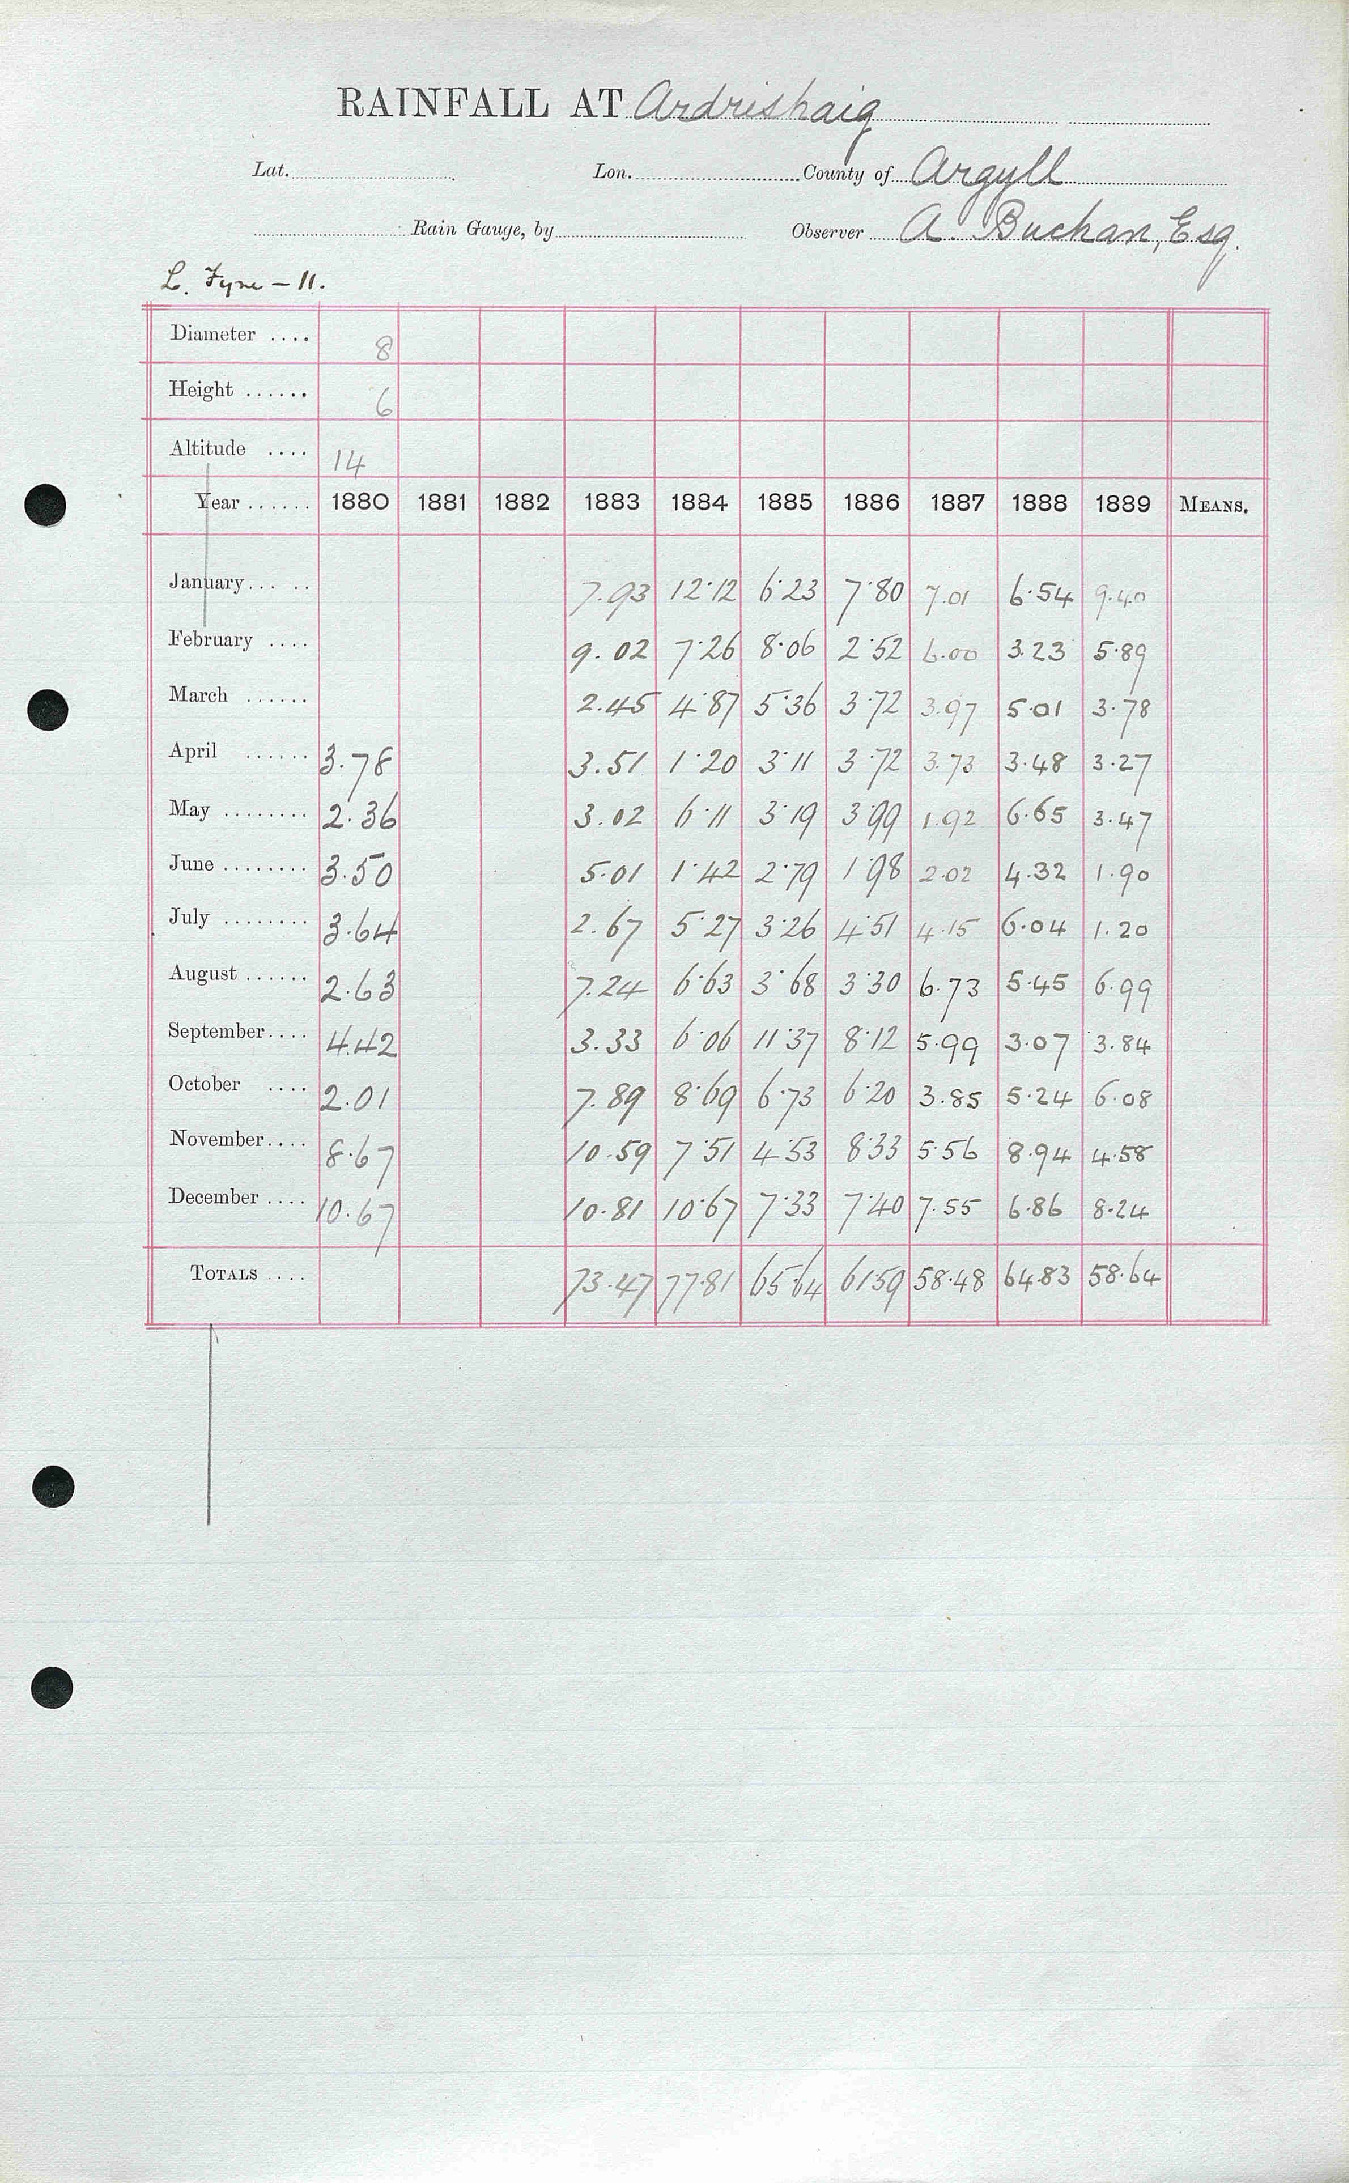 RAINFALL AT Ardrishaig
Lat. Lon. County of Argyll
Rain Gauge, by Observer A. Buchan, Esq.
L. Fyne - 11.
Diameter .... 8
Height ...... 6
Altitude .... 14
Year ...... 1880 1881 1882 1883 1884 1885 1886 1887 1888 1889 MEANS.
January... .. 7.93 12.12 6.23 7.80 7.01 6.54 9.40
February .... 9.02 7.26 8.06 2.52 6.00 3.23 5.89
March ...... 2.45 4.87 5.36 3.72 3.97 5.01 3.78
April ...... 3.78 3.51 1.20 3.11 3.72 3.73 3.48 3.27
May ........ 2.36 3.02 6.11 3.19 3.99 1.92 6.65 3.47
June ........ 3.50 5.01 1.42 2.79 1.98 2.02 4.32 1.90
July ........ 3.64 2.67 5.27 3.26 4.51 4.15 6.04 1.20
August ...... 2.63 7.24 6.63 3.68 3.30 6.73 5.45 6.99
September.... 4.42 3.33 6.06 11.37 8.12 5.99 3.07 3.84
October .... 2.01 7.89 8.69 6.73 6.20 3.85 5.24 6.08
November.... 8.67 10.59 7.51 4.53 8.33 5.56 8.94 4.58
December .... 10.67 10.81 10.67 7.33 7.40 7.55 6.86 8.24
TOTALS .... 73.47 77.81 65.64 61.59 58.48 64.83 58.64